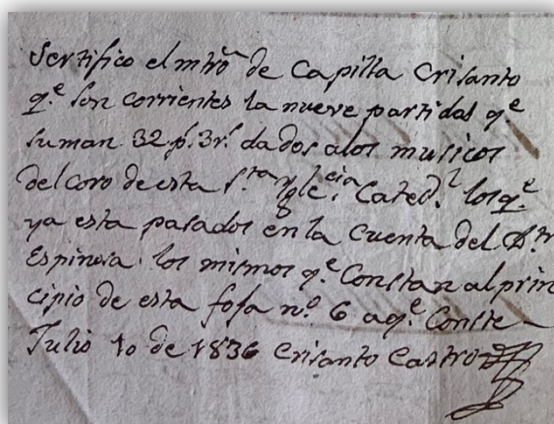 Sertifico el mtrõ de Capilla Crisanto
q.e son corrientes la nueve partidas q.e
suman 32 p.s 3 r.s dados a los musicos
del coro de esta S.ta Ygle.cia Cated.l los q.e
ya esta pasados en la Cuenta del S.r
Espinosa los mismos q.e Constan al prin
cipio de esta fofa n.o 6 a q.e Conste
Julio 10 de 1836 Crisanto Castro